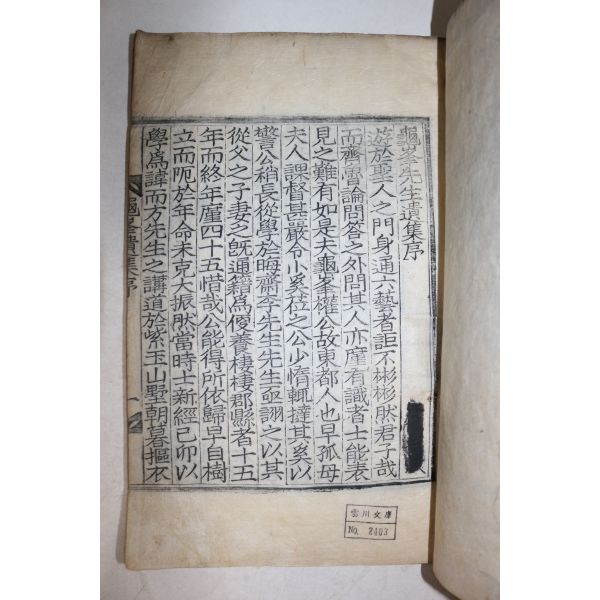 龜峯先生遺集序
遊於聖人之門身通六藝者詎不彬彬然君子哉
而齊魯論問答之外問其人亦廑有識者士能表
見之難有如是夫龜峯權公故東都人也早孤母
夫人課督甚嚴令小奚莅之公少惰輒撻其奚以
警公稍長從學於晦齋李先生先生亟詡之以其
從父之子妻之旣通籍爲便養棲棲郡縣者十五
年而終年廑四十五惜哉公能得所依歸早自樹
立而阨於年命未克大振然當時士新經己卯以
學爲諱而方先生之講道於紫玉山墅朝暮摳衣
龜峯遺集序
一
雲川文庫
No. 2403